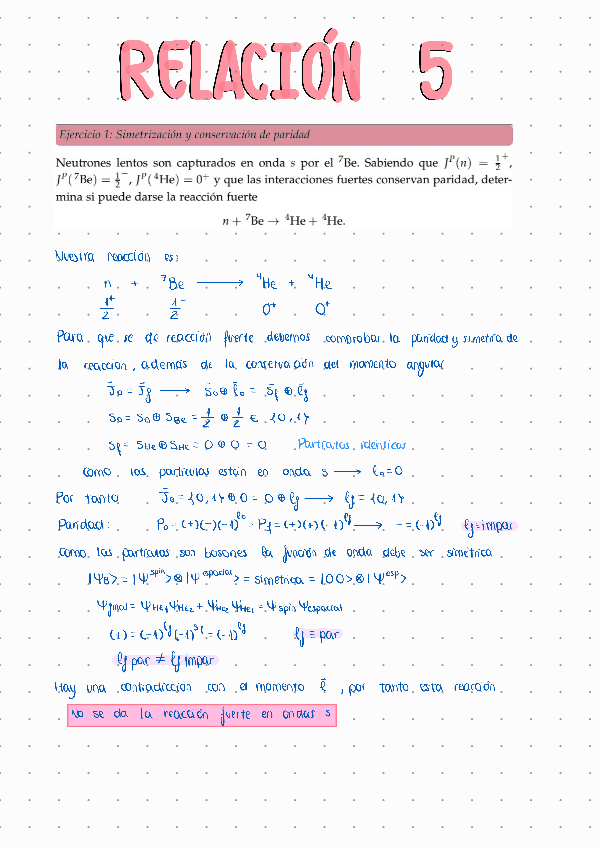 RELACIÓN 5
Ejercicio 1: Simetrización y conservación de paridad
Neutrones lentos son capturados en onda s por el ⁷Be. Sabiendo que Jᴾ(n) = 1/2⁺,
Jᴾ(⁷Be) = 1/2⁻, Jᴾ(⁴He) = 0⁺ y que las interacciones fuertes conservan paridad, deter-
mina si puede darse la reacción fuerte
n + ⁷Be → ⁴He + ⁴He.
Nuestra reacción es:
n + ⁷Be → ⁴He + ⁴He
1/2⁺ 1/2⁻ 0⁺ 0⁺
Para que se de reacción fuerte debemos comprobar la paridad y simetría de
la reacción, además de la conservación del momento angular
J̄₀ = J̄f → S̄₀ ⊕ l̄₀ = S̄f ⊕ l̄f
S₀ = S₀ ⊕ SBe = 1/2 ⊕ 1/2 ∈ {0,1}
Sf = SHe ⊕ SHe = 0 ⊕ 0 = 0 Partículas idénticas
como las partículas están en onda s → l₀ = 0
Por tanto J̄₀ = {0,1} ⊕ 0 = 0 ⊕ lf → lf = {0,1}
Paridad: P₀ = (+)(-)(-1)^l₀ = Pf = (+)(+)(-1)^lf → - = (-1)^lf lf = impar
como las partículas son bosones la función de onda debe ser simétrica
|ΨB> = |Ψ^spin> ⊗ |Ψ^espacial> = simétrica = |00> ⊗ |Ψ^esp>
Ψfinal = ΨHe1 ΨHe2 + ΨHe2 ΨHe1 = Ψspin Ψespacial
(+) = (-1)^lf (-1)^sf = (-1)^lf lf = par
lf par ≠ lf impar
Hay una contradicción con el momento l̄, por tanto esta reacción
No se da la reacción fuerte en ondas s